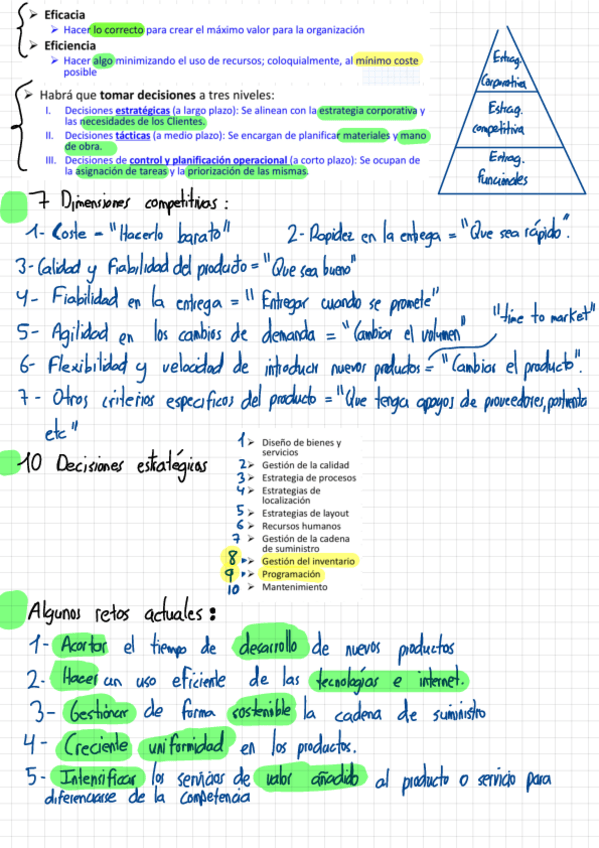 ➢ Eficacia
➢ Hacer lo correcto para crear el máximo valor para la organización
➢ Eficiencia
➢ Hacer algo minimizando el uso de recursos; coloquialmente, al mínimo coste
posible
➢ Habrá que tomar decisiones a tres niveles:
I. Decisiones estratégicas (a largo plazo): Se alinean con la estrategia corporativa y
las necesidades de los Clientes.
II. Decisiones tácticas (a medio plazo): Se encargan de planificar materiales y mano
de obra.
III. Decisiones de control y planificación operacional (a corto plazo): Se ocupan de
la asignación de tareas y la priorización de las mismas.
Estrag.
Corporativa
Estrag.
competitiva
Estrag.
funcionales
7 Dimensiones competitivas:
1- Coste = "Hacerlo barato"
2- Rapidez en la entrega = "Que sea rápido".
3- Calidad y Fiabilidad del producto = "Que sea bueno"
4- Fiabilidad en la entrega = "Entregar cuando se promete"
"time to market"
5- Agilidad en los cambios de demanda = "Cambiar el volumen"
6- Flexibilidad y velocidad de introducir nuevos productos = "Cambiar el producto".
7- Otros criterios específicos del producto = "Que tenga apoyos de proveedores,
etc"
10 Decisiones estratégicas
1 ➢ Diseño de bienes y
servicios
2 ➢ Gestión de la calidad
3 ➢ Estrategia de procesos
4 ➢ Estrategias de
localización
5 ➢ Estrategias de layout
6 ➢ Recursos humanos
7 ➢ Gestión de la cadena
de suministro
8 ➢ Gestión del inventario
9 ➢ Programación
10 ➢ Mantenimiento
Algunos retos actuales:
1- Acortar el tiempo de desarrollo de nuevos productos
2- Hacer un uso eficiente de las tecnologías e internet.
3- Gestionar de forma sostenible la cadena de suministro
4- Creciente uniformidad en los productos.
5- Intensificar los servicios de valor añadido al producto o servicio para
diferenciarse de la competencia